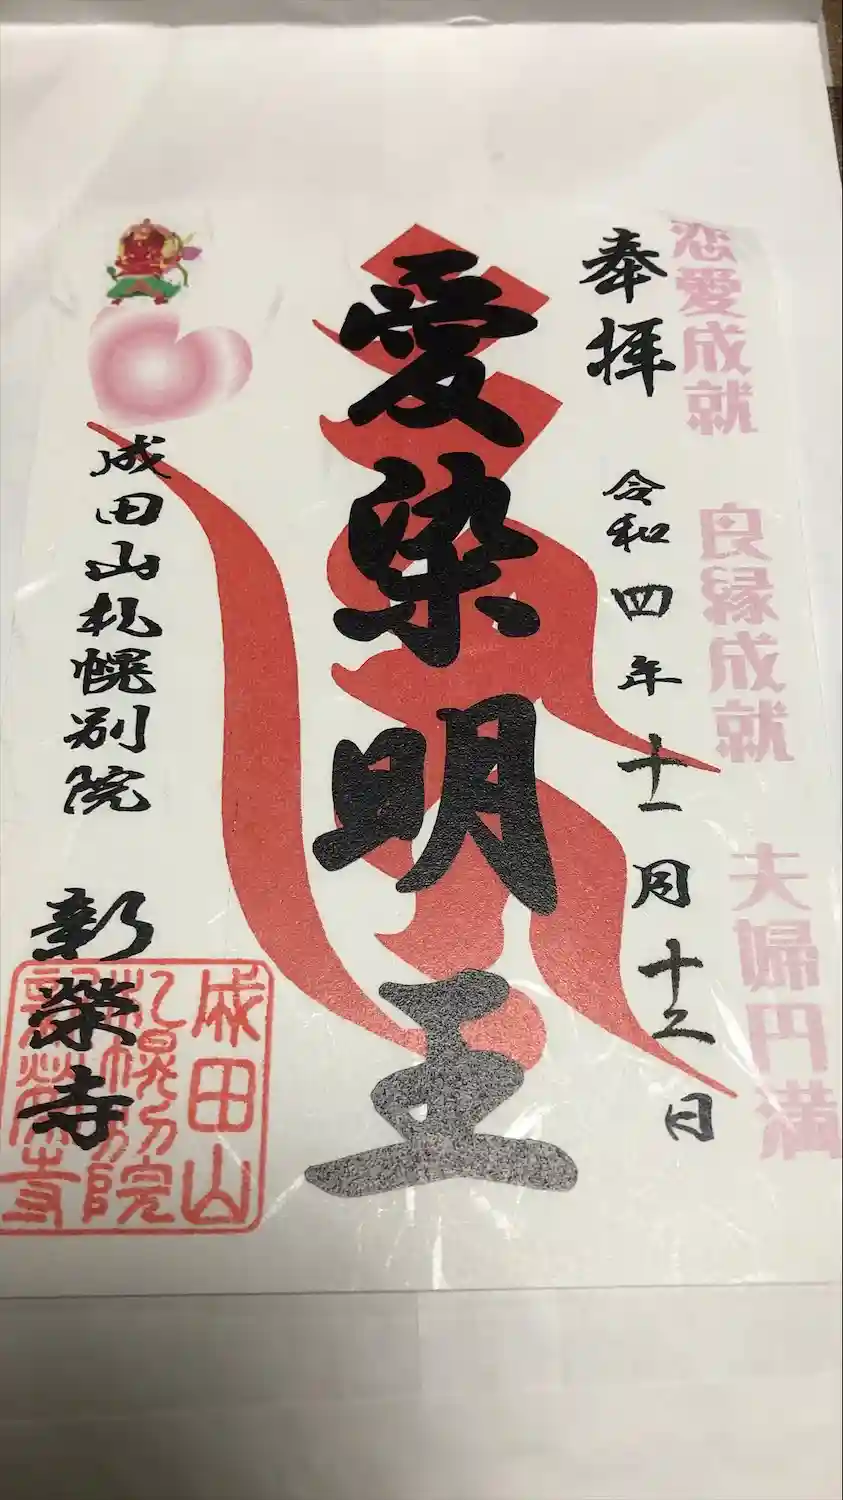 恋愛成就 良縁成就 夫婦円満
奉拝 令和四年十一月十二日
愛染明王
成田山札幌別院 新榮寺
成田山
札幌別院
新榮寺